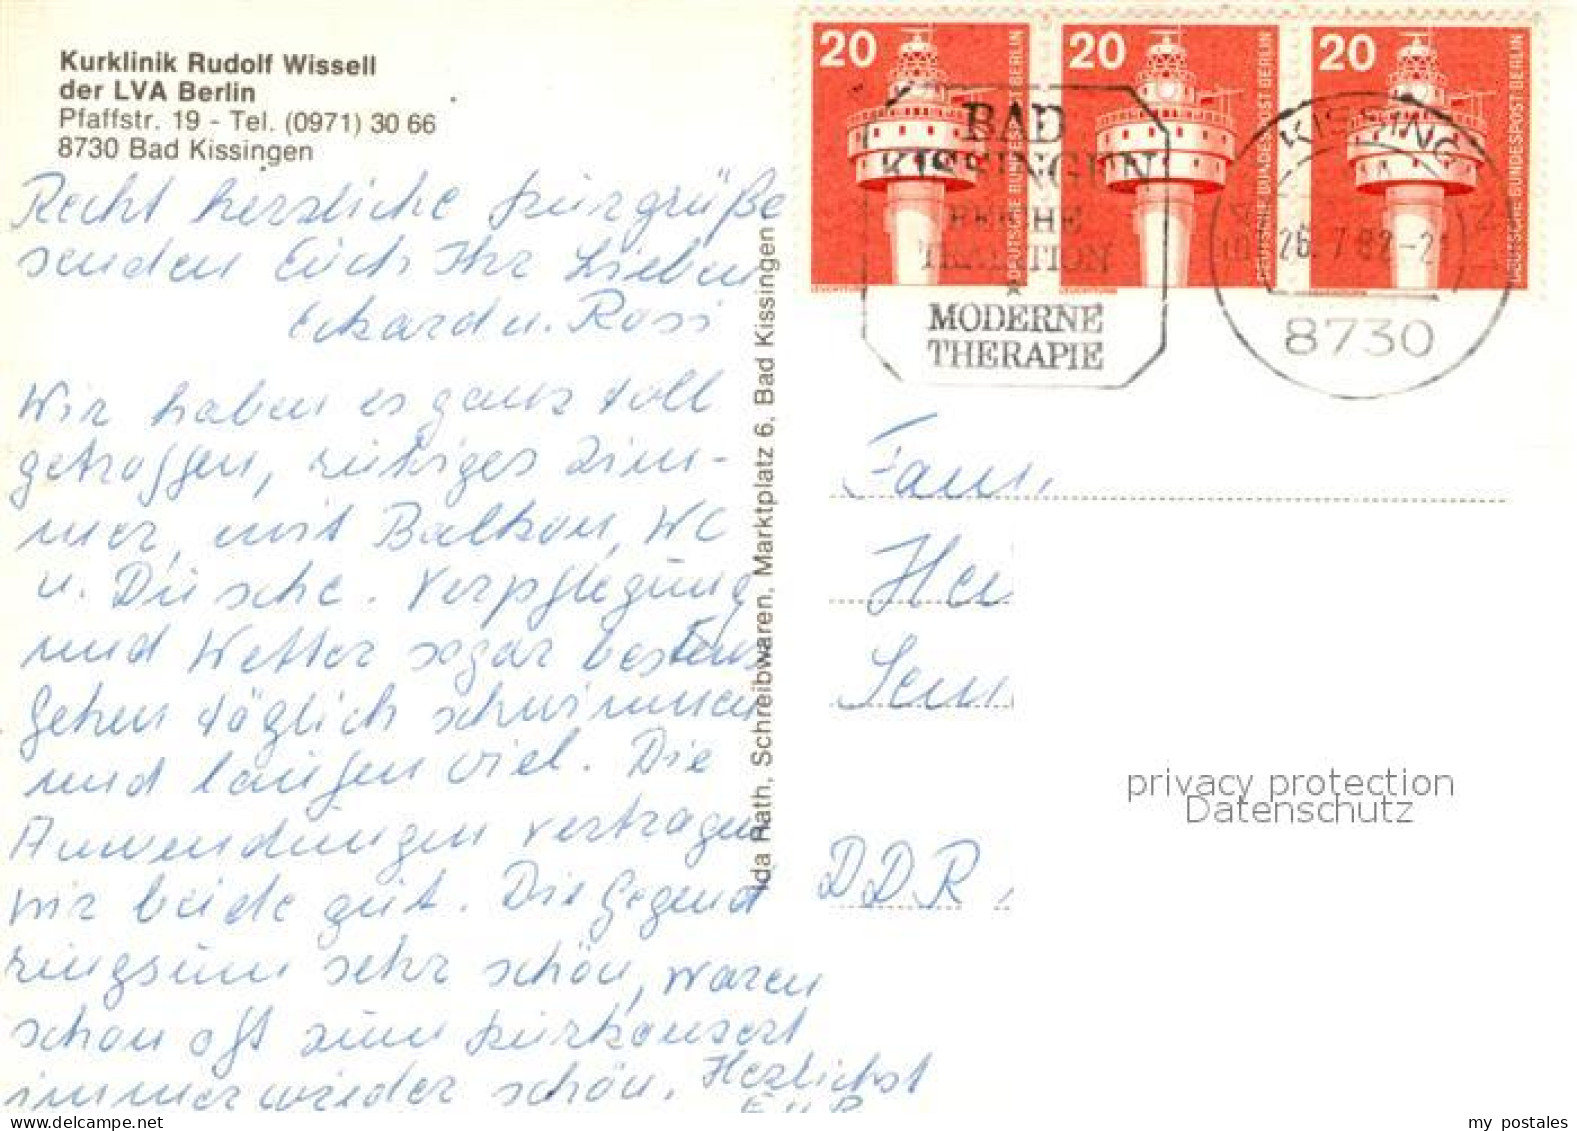 Kurklinik Rudolf Wissell
der LVA Berlin
Pfaffstr. 19 - Tel. (0971) 30 66
8730 Bad Kissingen
Recht herzliche Kurgrüße
senden Euch, Ihr Lieben
Eckard u. Rosi
Wir haben es ganz toll
getroffen, ruhiges Zim-
mer, mit Balkon, WC
u. Dusche. Verpflegung
und Wetter sogar bestens
Gehen täglich schwimmen
und laufen viel. Die
Anwendungen vertragen
wir beide gut. Die Gegend
ringsum sehr schön, waren
schon oft zum Kurkonzert
immer wieder schön. Herzlichst
E u R
Ida Rath, Schreibwaren, Marktplatz 6, Bad Kissingen
20
DEUTSCHE BUNDESPOST BERLIN
20
DEUTSCHE BUNDESPOST BERLIN
20
DEUTSCHE BUNDESPOST BERLIN
BAD
KISSINGEN
REICHE
TRADITION
*
MODERNE
THERAPIE
KISSING
26.7.82-21
8730
Fam.
Hei
DDR
privacy protection
Datenschutz
my postales